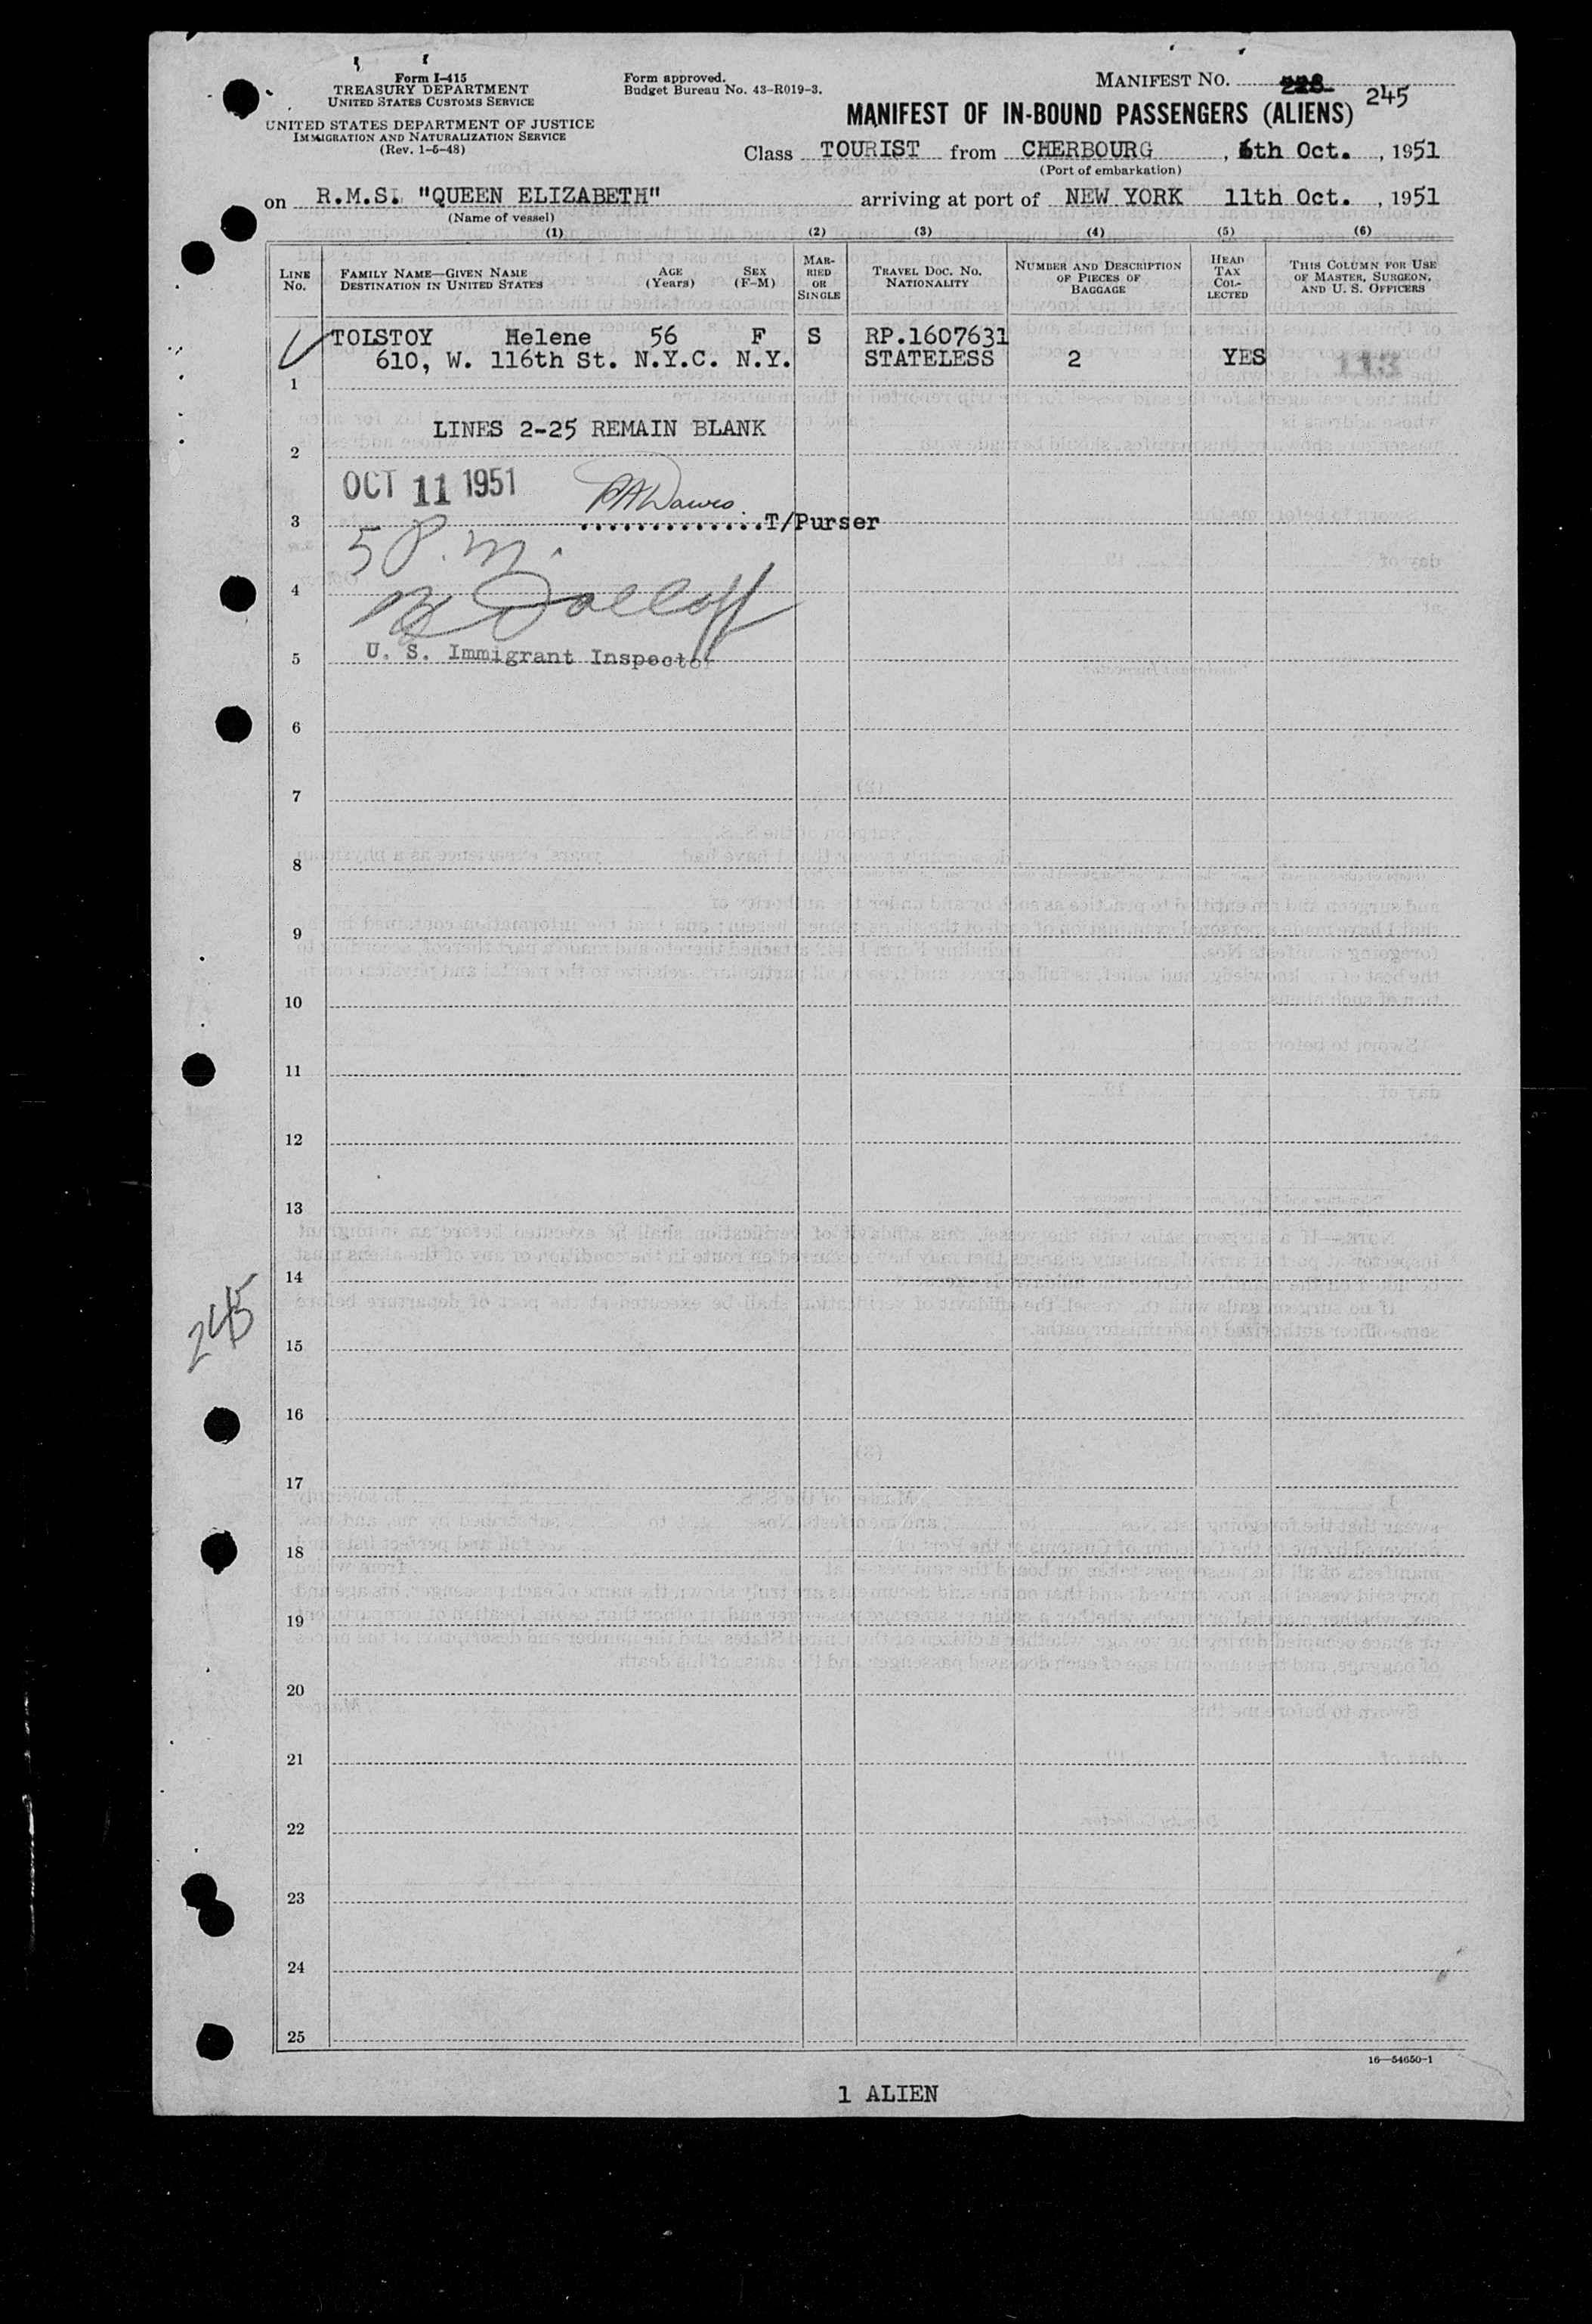 Form I-415
TREASURY DEPARTMENT
UNITED STATES CUSTOMS SERVICE
UNITED STATES DEPARTMENT OF JUSTICE
IMMIGRATION AND NATURALIZATION SERVICE
(Rev. 1-5-48)
Form approved.
Budget Bureau No. 43-R019-3.
MANIFEST NO. 228 245
MANIFEST OF IN-BOUND PASSENGERS (ALIENS)
Class TOURIST from CHERBOURG, 6th Oct., 1951
(Port of embarkation)
on R.M.S. "QUEEN ELIZABETH" arriving at port of NEW YORK 11th Oct., 1951
(Name of vessel)
(1) (2) (3) (4) (5) (6)
LINE No. FAMILY NAME—GIVEN NAME DESTINATION IN UNITED STATES AGE (Years) SEX (F-M) MARRIED OR SINGLE TRAVEL DOC. NO. NATIONALITY NUMBER AND DESCRIPTION OF PIECES OF BAGGAGE HEAD TAX COLLECTED THIS COLUMN FOR USE OF MASTER, SURGEON, AND U. S. OFFICERS
TOLSTOY Helene 56 F S RP.1607631
610, W. 116th St. N.Y.C. N.Y. STATELESS 2 YES 113
1
LINES 2-25 REMAIN BLANK
2
OCT 11 1951
3 .............T/Purser
5 P.m.
4
5 U. S. Immigrant Inspector
6
7
8
9
10
11
12
13
14
245
15
16
17
18
19
20
21
22
23
24
25
16—54650-1
1 ALIEN